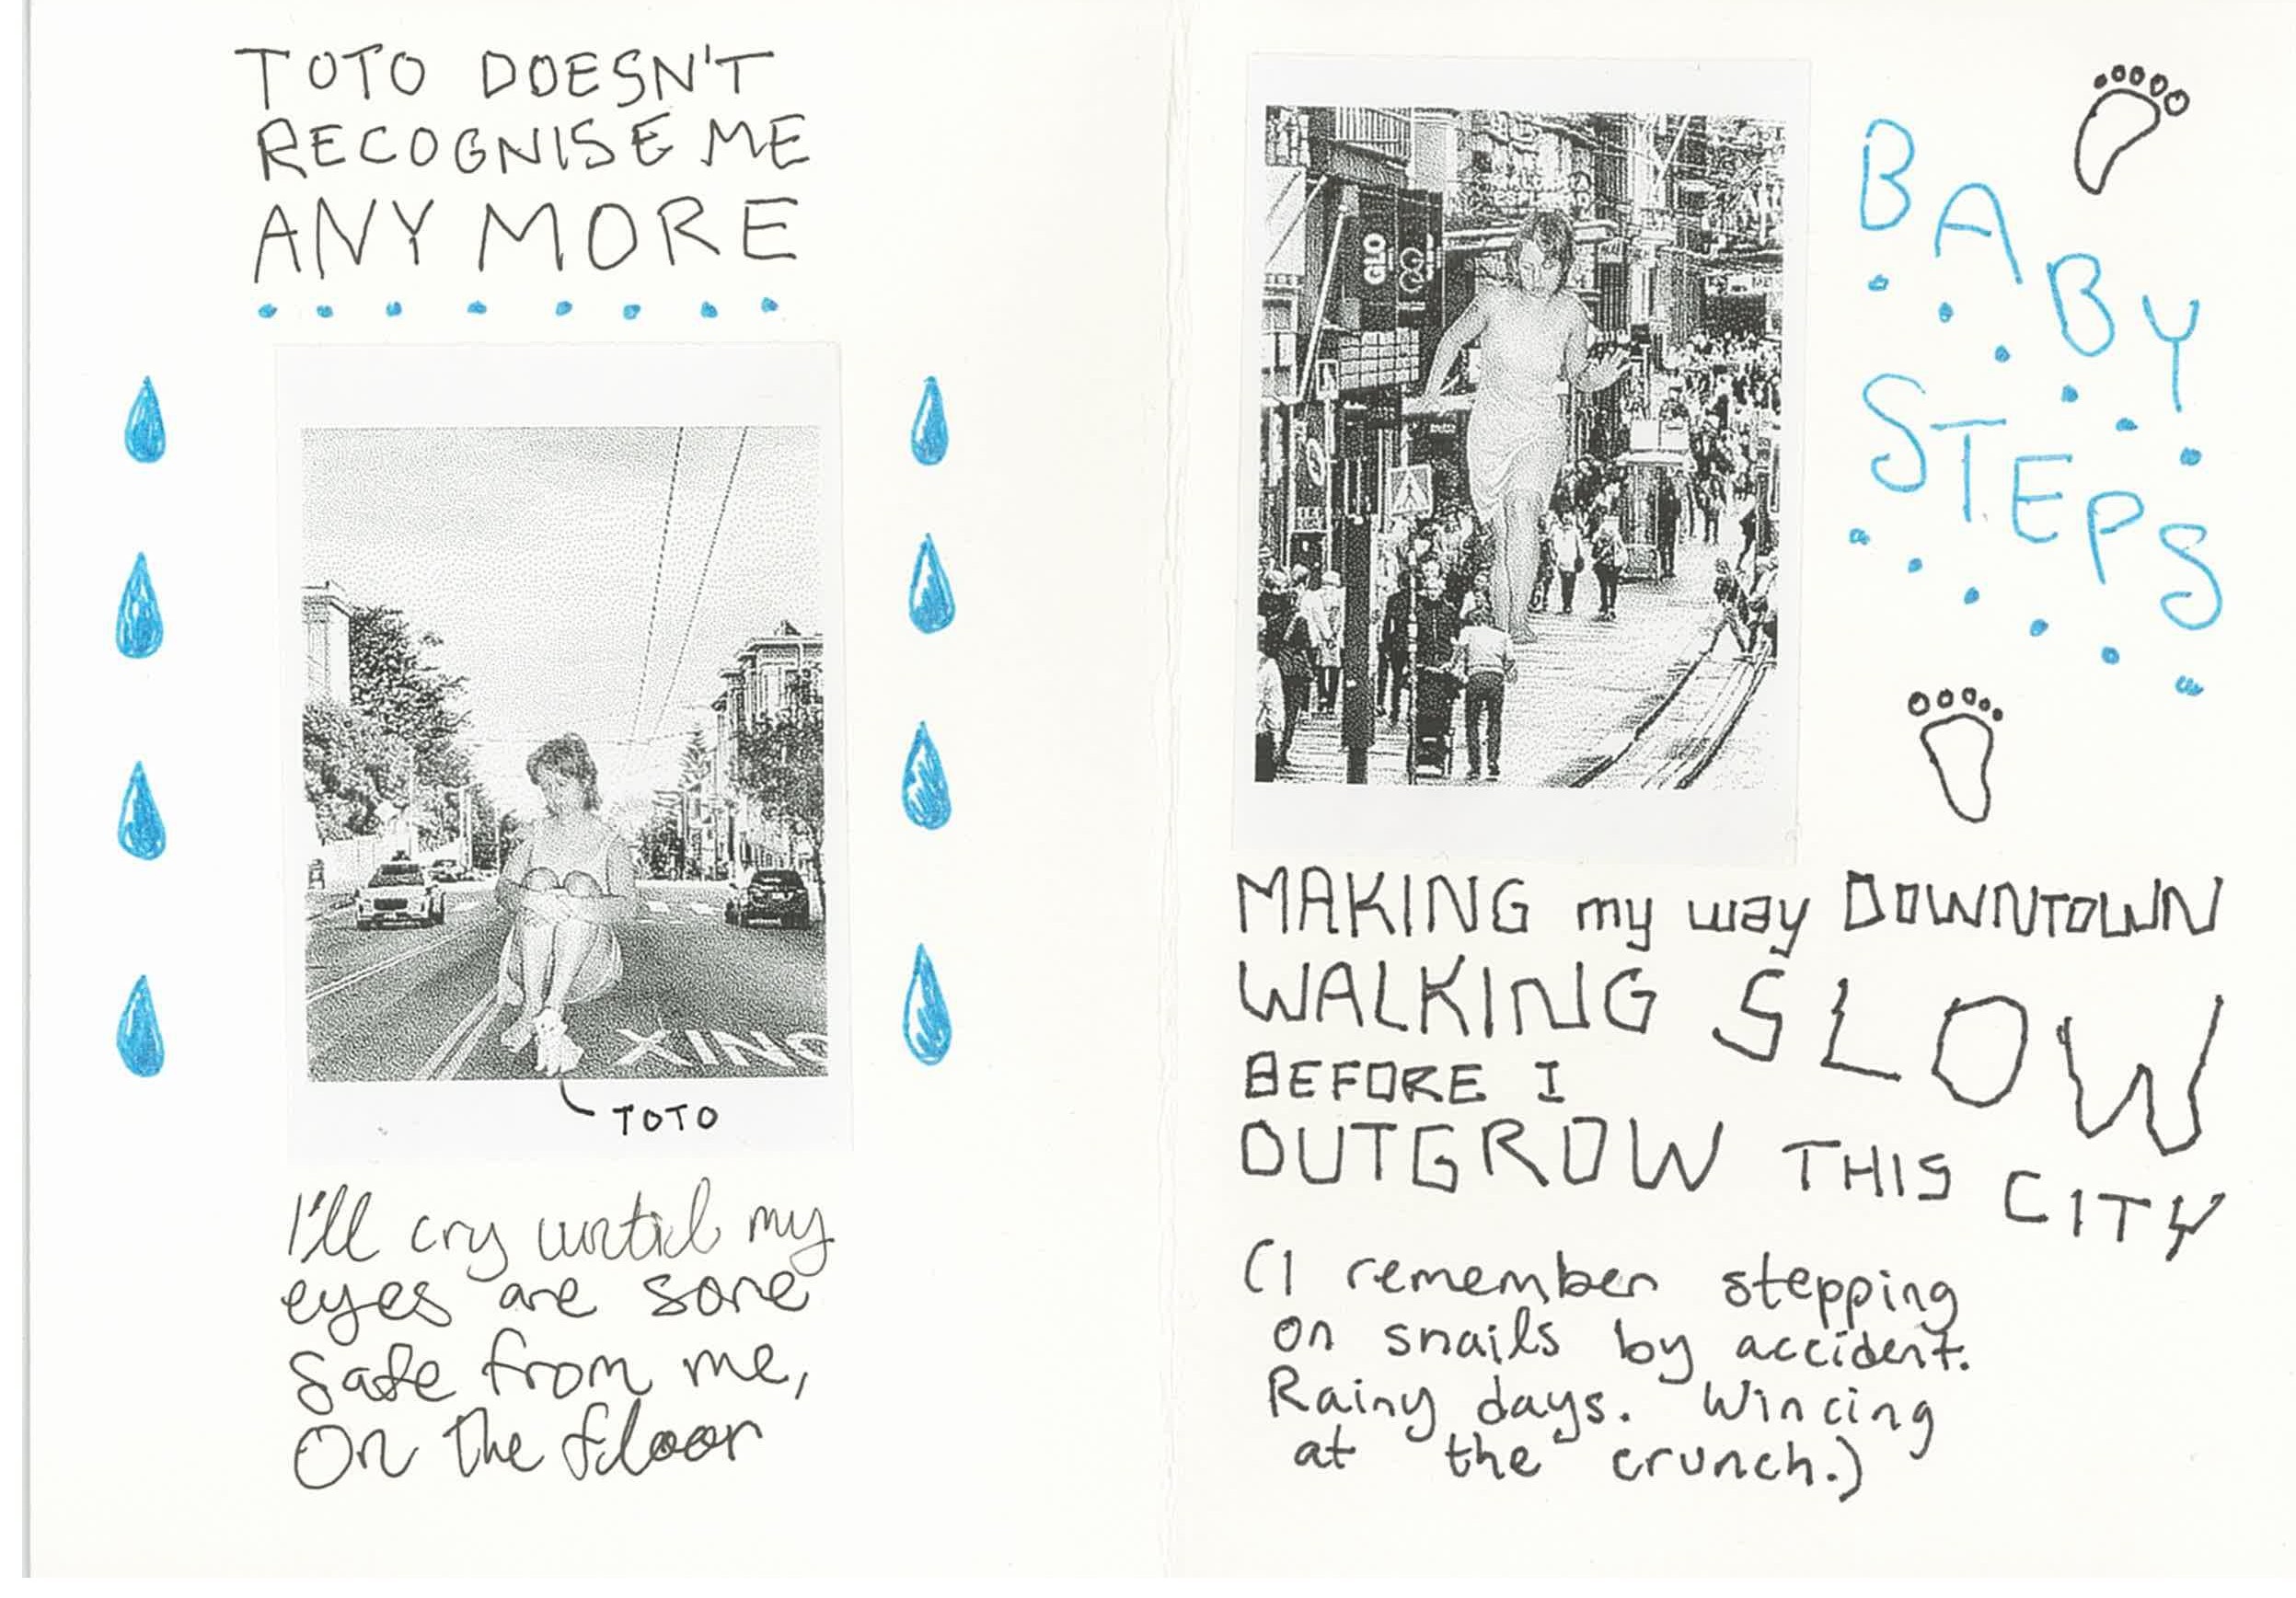 TOTO DOESN'T
RECOGNISE ME
ANY MORE
XING
TOTO
I'll cry until my
eyes are sore
safe from me,
on the floor
GLO
BABY
STEPS
MAKING my way DOWNTOWN
WALKING SLOW
BEFORE I
OUTGROW THIS CITY
(I remember stepping
on snails by accident.
Rainy days. Wincing
at the crunch.)